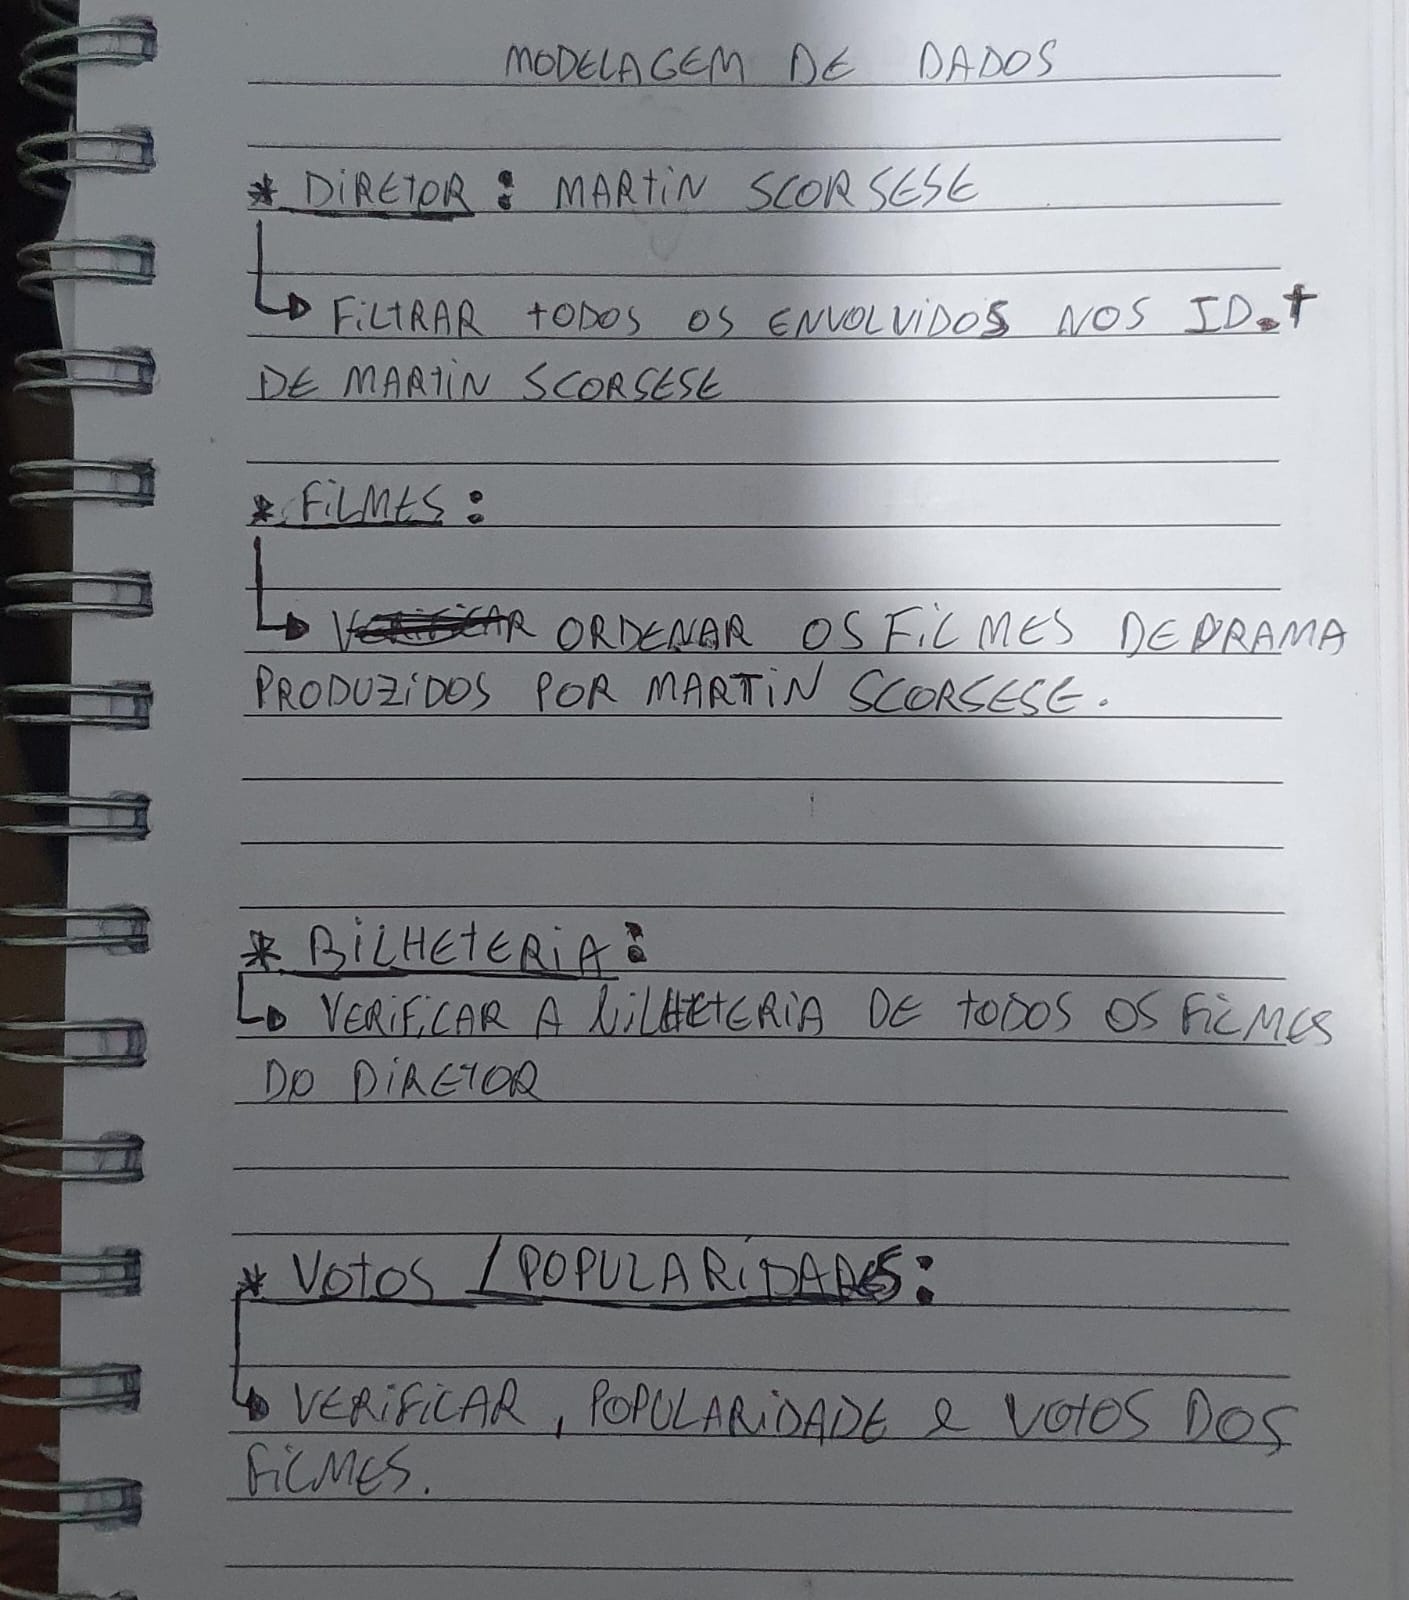 MODELAGEM DE DADOS
* DIRETOR: MARTIN SCORSESE
FILTRAR TODOS OS ENVOLVIDOS NOS ID.T
DE MARTIN SCORSESE
* FILMES:
VERIFICAR ORDENAR OS FILMES DE DRAMA
PRODUZIDOS POR MARTIN SCORSESE.
* BILHETERIA:
VERIFICAR A BILHETERIA DE TODOS OS FILMES
DO DIRETOR
* VOTOS / POPULARIDADES:
VERIFICAR, POPULARIDADE e VOTOS DOS
FILMES.